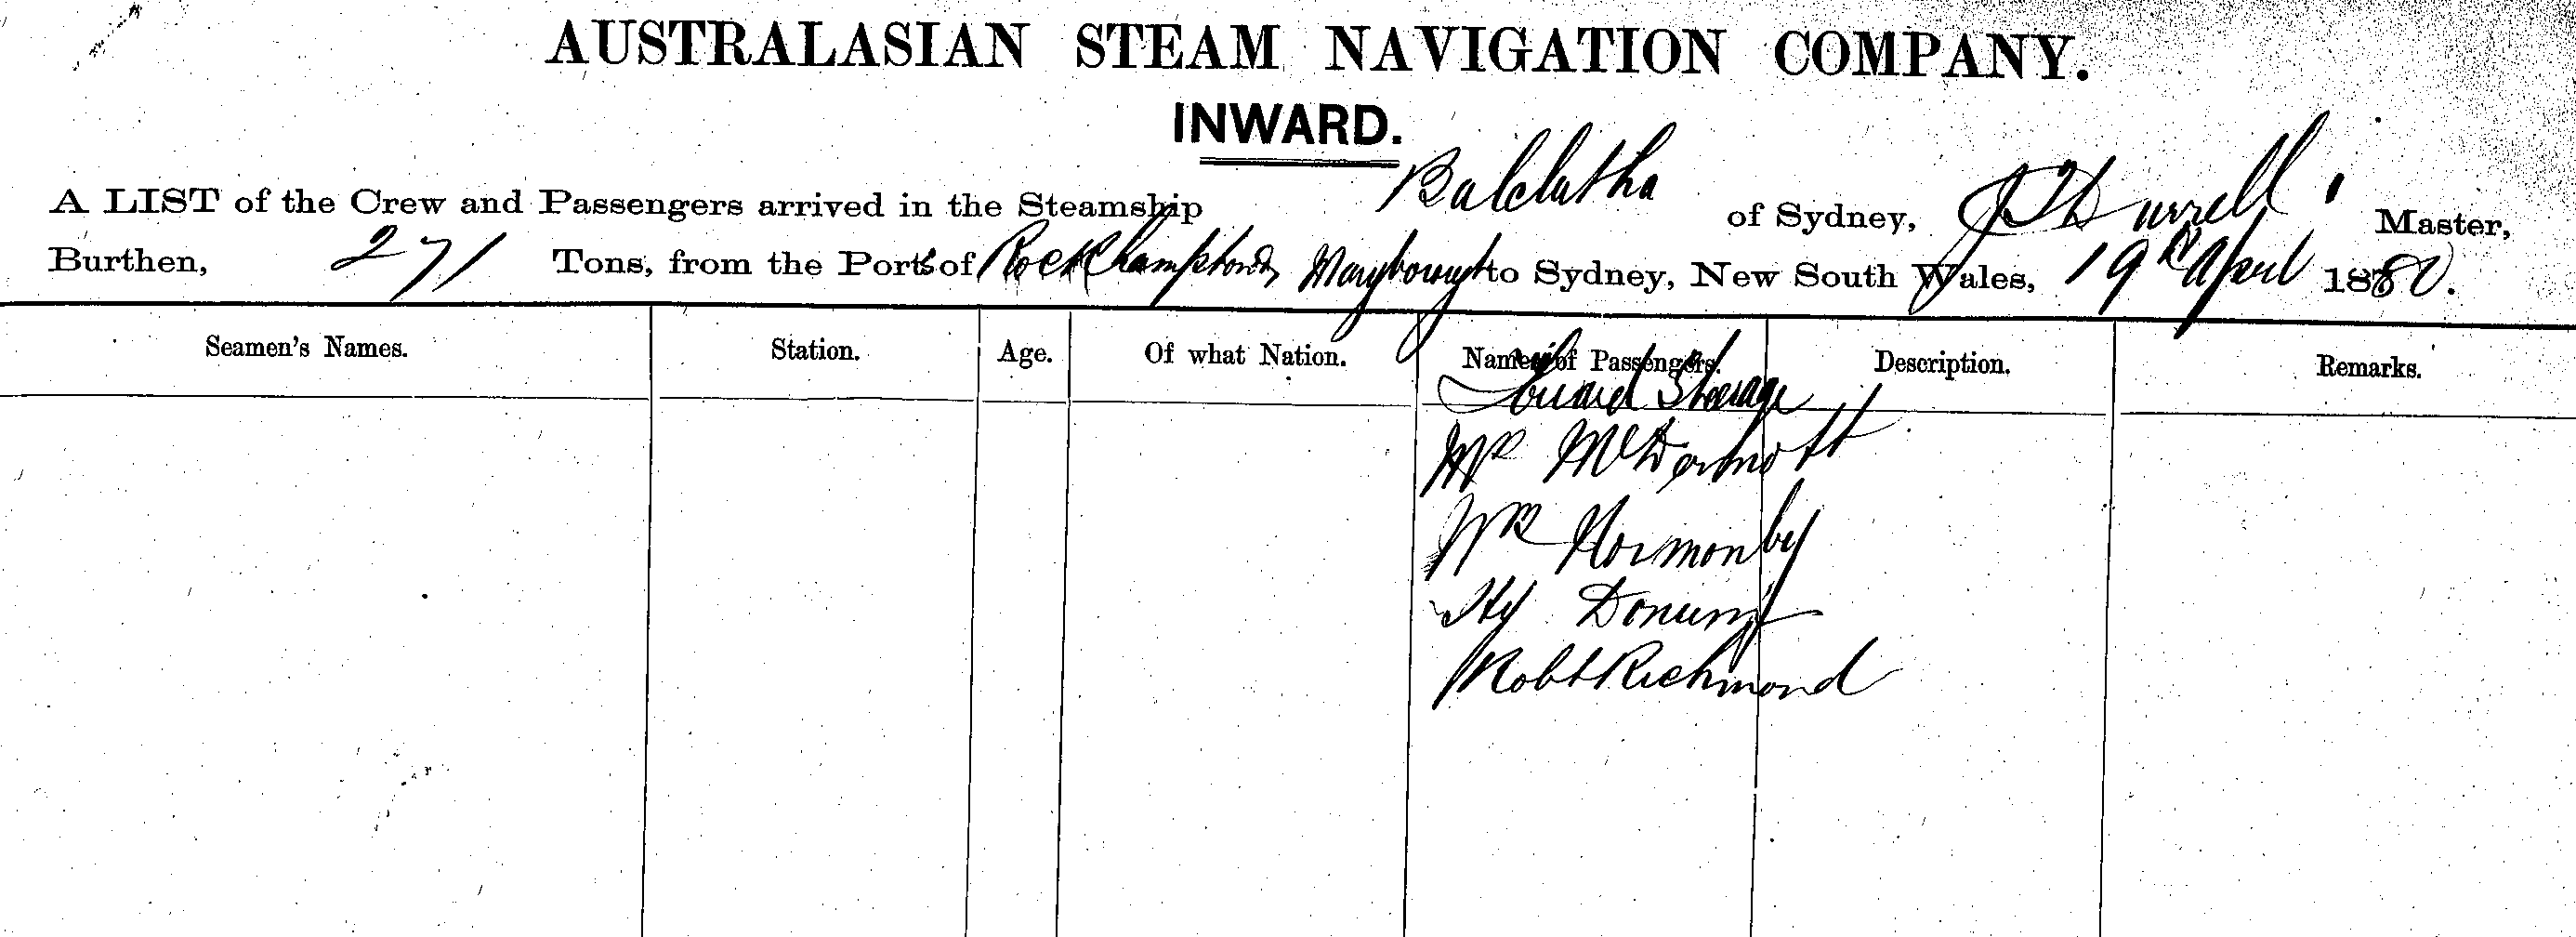 AUSTRALASIAN STEAM NAVIGATION COMPANY.
INWARD.
A LIST of the Crew and Passengers arrived in the Steamship Balclutha of Sydney, Master,
Burthen, 271 Tons, from the Ports of Rockhampton & Maryboro' to Sydney, New South Wales, 19th April 1880.
Seamen's Names. Station. Age. Of what Nation. Names of Passengers. Description. Remarks.
Forward Steerage
McDermott
Wm Normonby
Hy
Robt Richmond